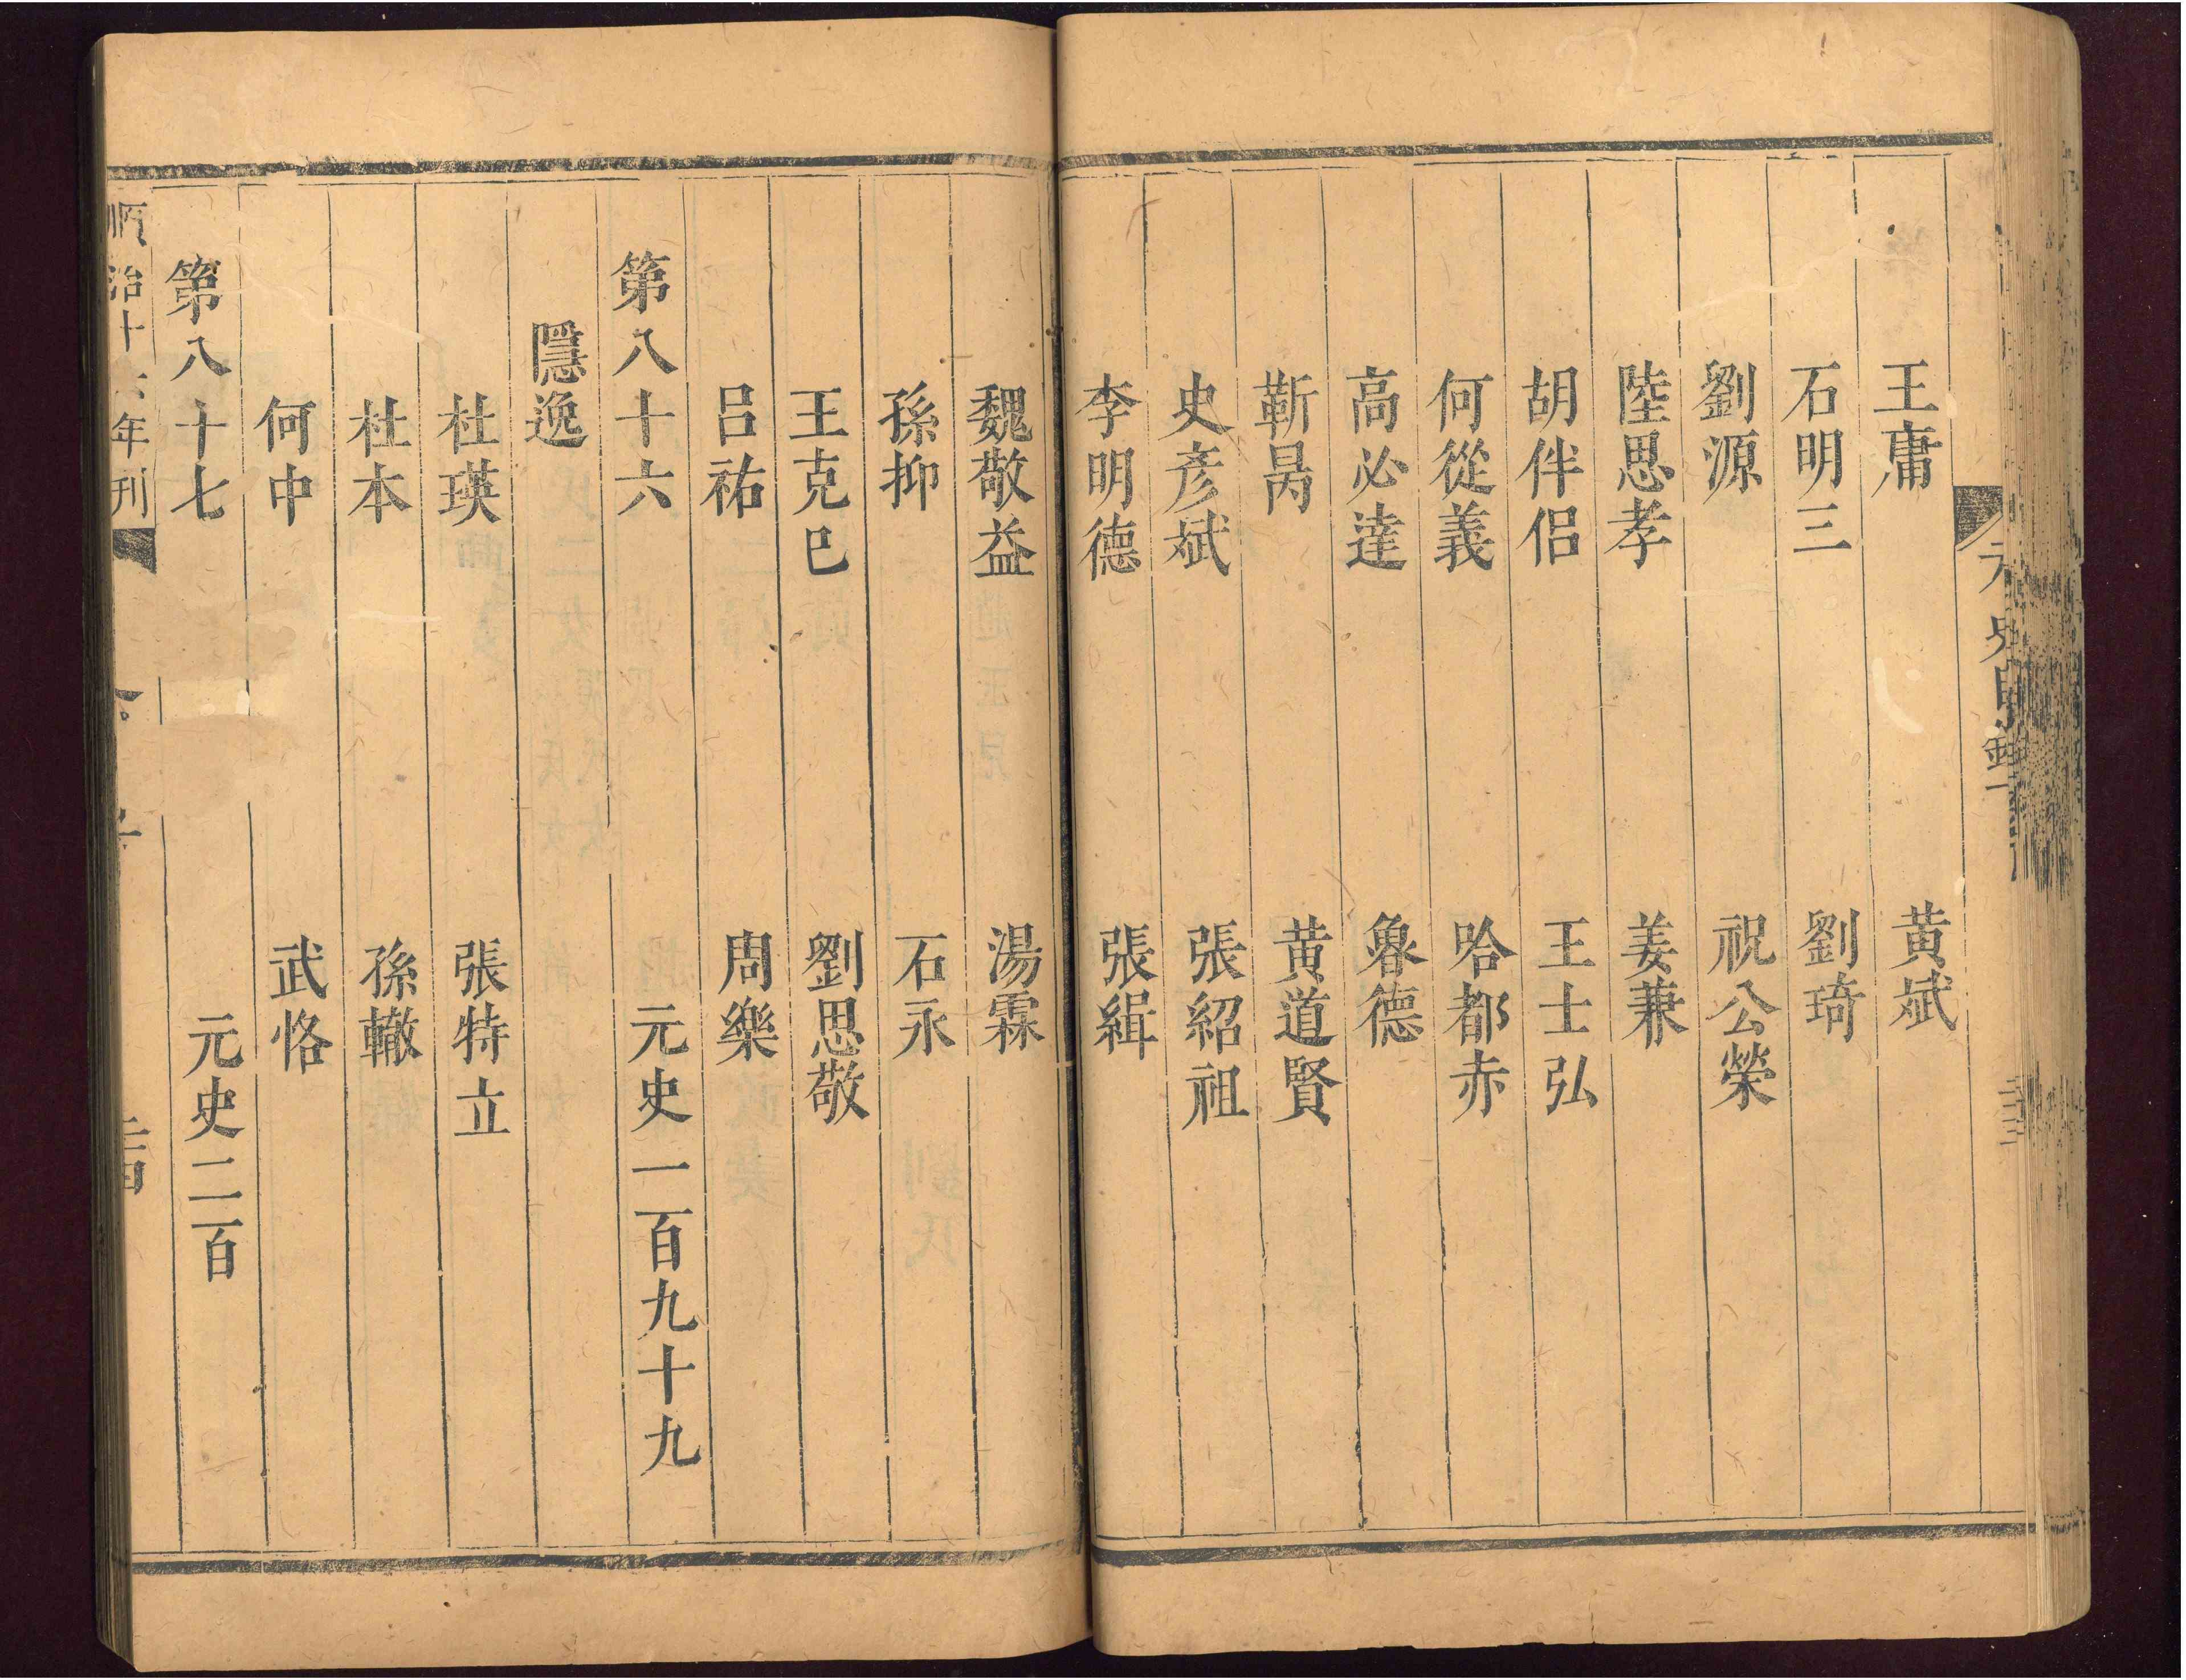 元史目錄下
王庸 黄斌
石明三 劉琦
劉源 祝公榮
陸思孝 姜兼
胡伴侶 王士弘
何從義 哈都赤
高必達 魯德
靳昺 黄道賢
史彦斌 張紹祖
李明德 張緝
魏敬益 湯霖
孫抑 石永
王克巳 劉思敬
呂祐 周樂
第八十六 元史一百九十九
隱逸
杜瑛 張特立
杜本 孫轍
何中 武恪
第八十七 元史二百
順治十六年刊